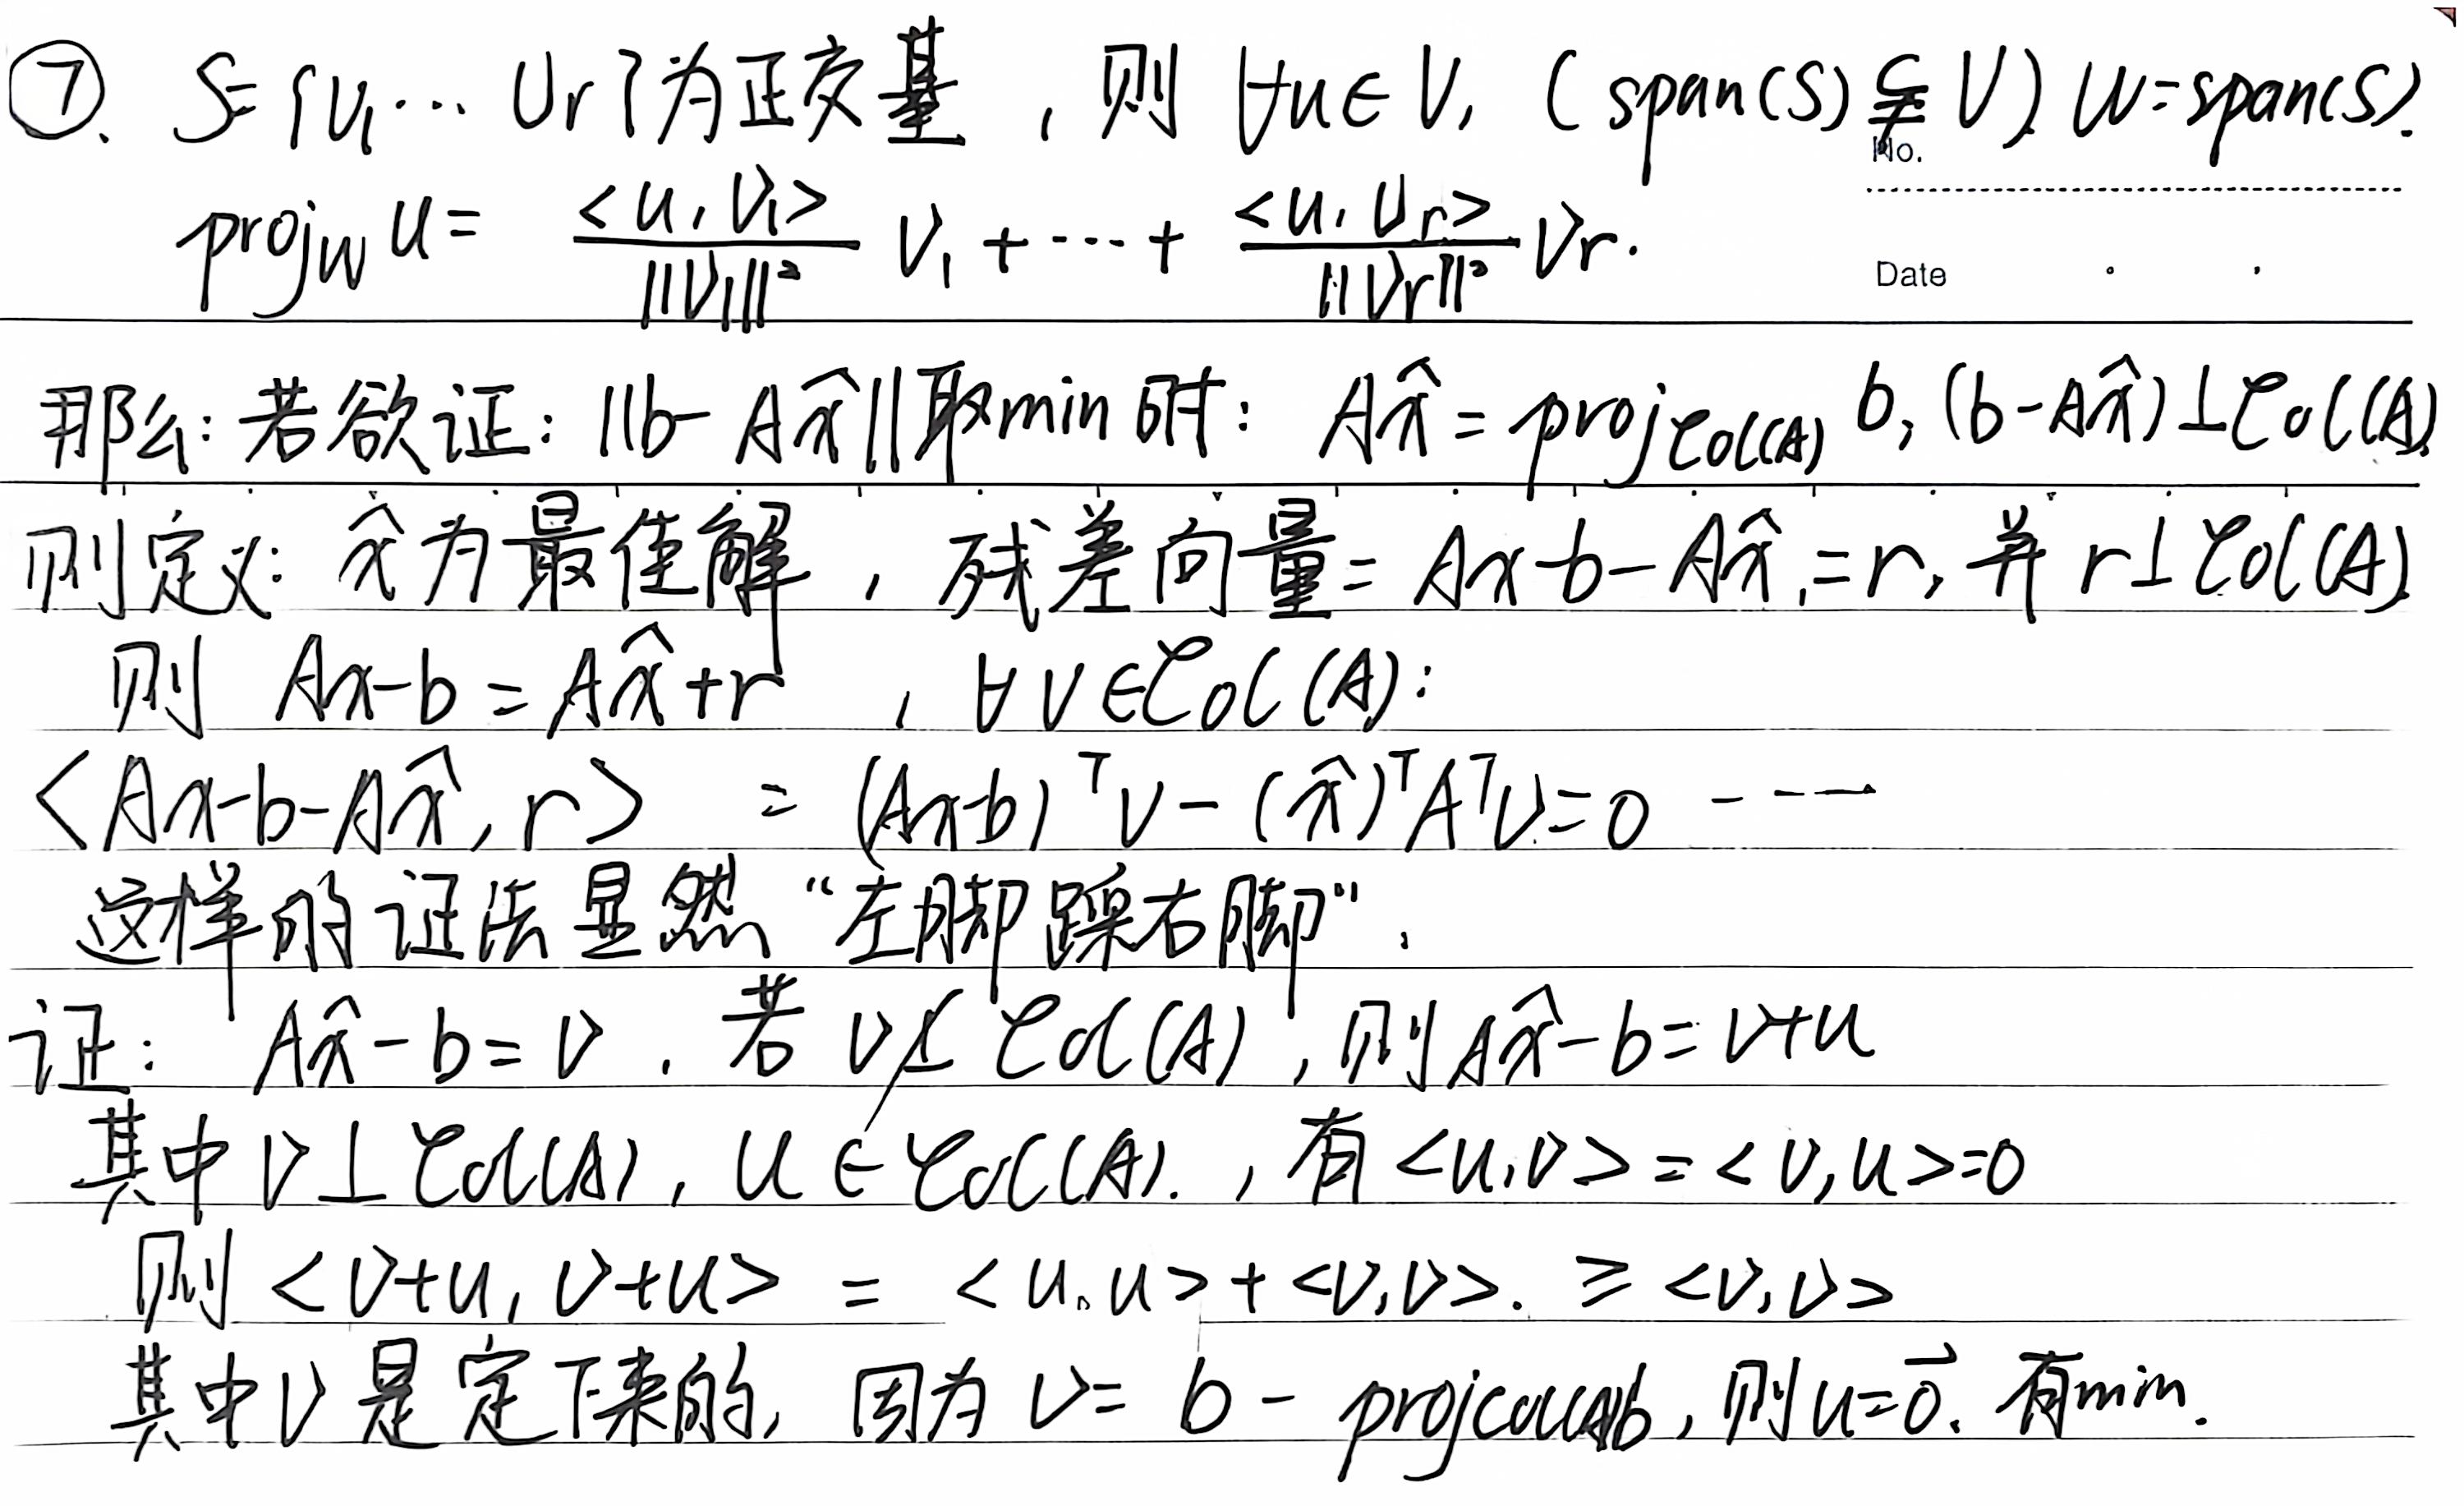 ⑦. S={v₁⋯ vᵣ}为正交基，则 ∀u∈V, (span(S)⊊V) W=span(S).
No.
projw u= <u,v₁>/||v₁||² v₁+⋯+ <u,vᵣ>/||vᵣ||² vᵣ.
Date
那么:若欲证: ||b-Ax̂||取min时: Ax̂=projCol(A) b, (b-Ax̂)⊥Col(A)
则定义: x̂为最佳解，残差向量=Ax-b-Ax̂,=r, 并 r⊥Col(A).
则 Ax-b=Ax̂+r ，∀v∈Col(A):
<Ax-b-Ax̂, r> =(Ax-b)ᵀv-(x̂)ᵀAᵀv=0 ----
这样的证法显然“左脚踩右脚”.
证: Ax̂-b=v . 若 v⊥̸Col(A), 则Ax̂-b=v+u
其中 v⊥Col(A), u∈Col(A). , 有<u,v>=<v,u>=0
则<v+u, v+u> = <u,u>+<v,v>. ≥ <v,v>
其中v是定下来的, 因为 v= b-projCol(A)b, 则u=0⃗. 有min.